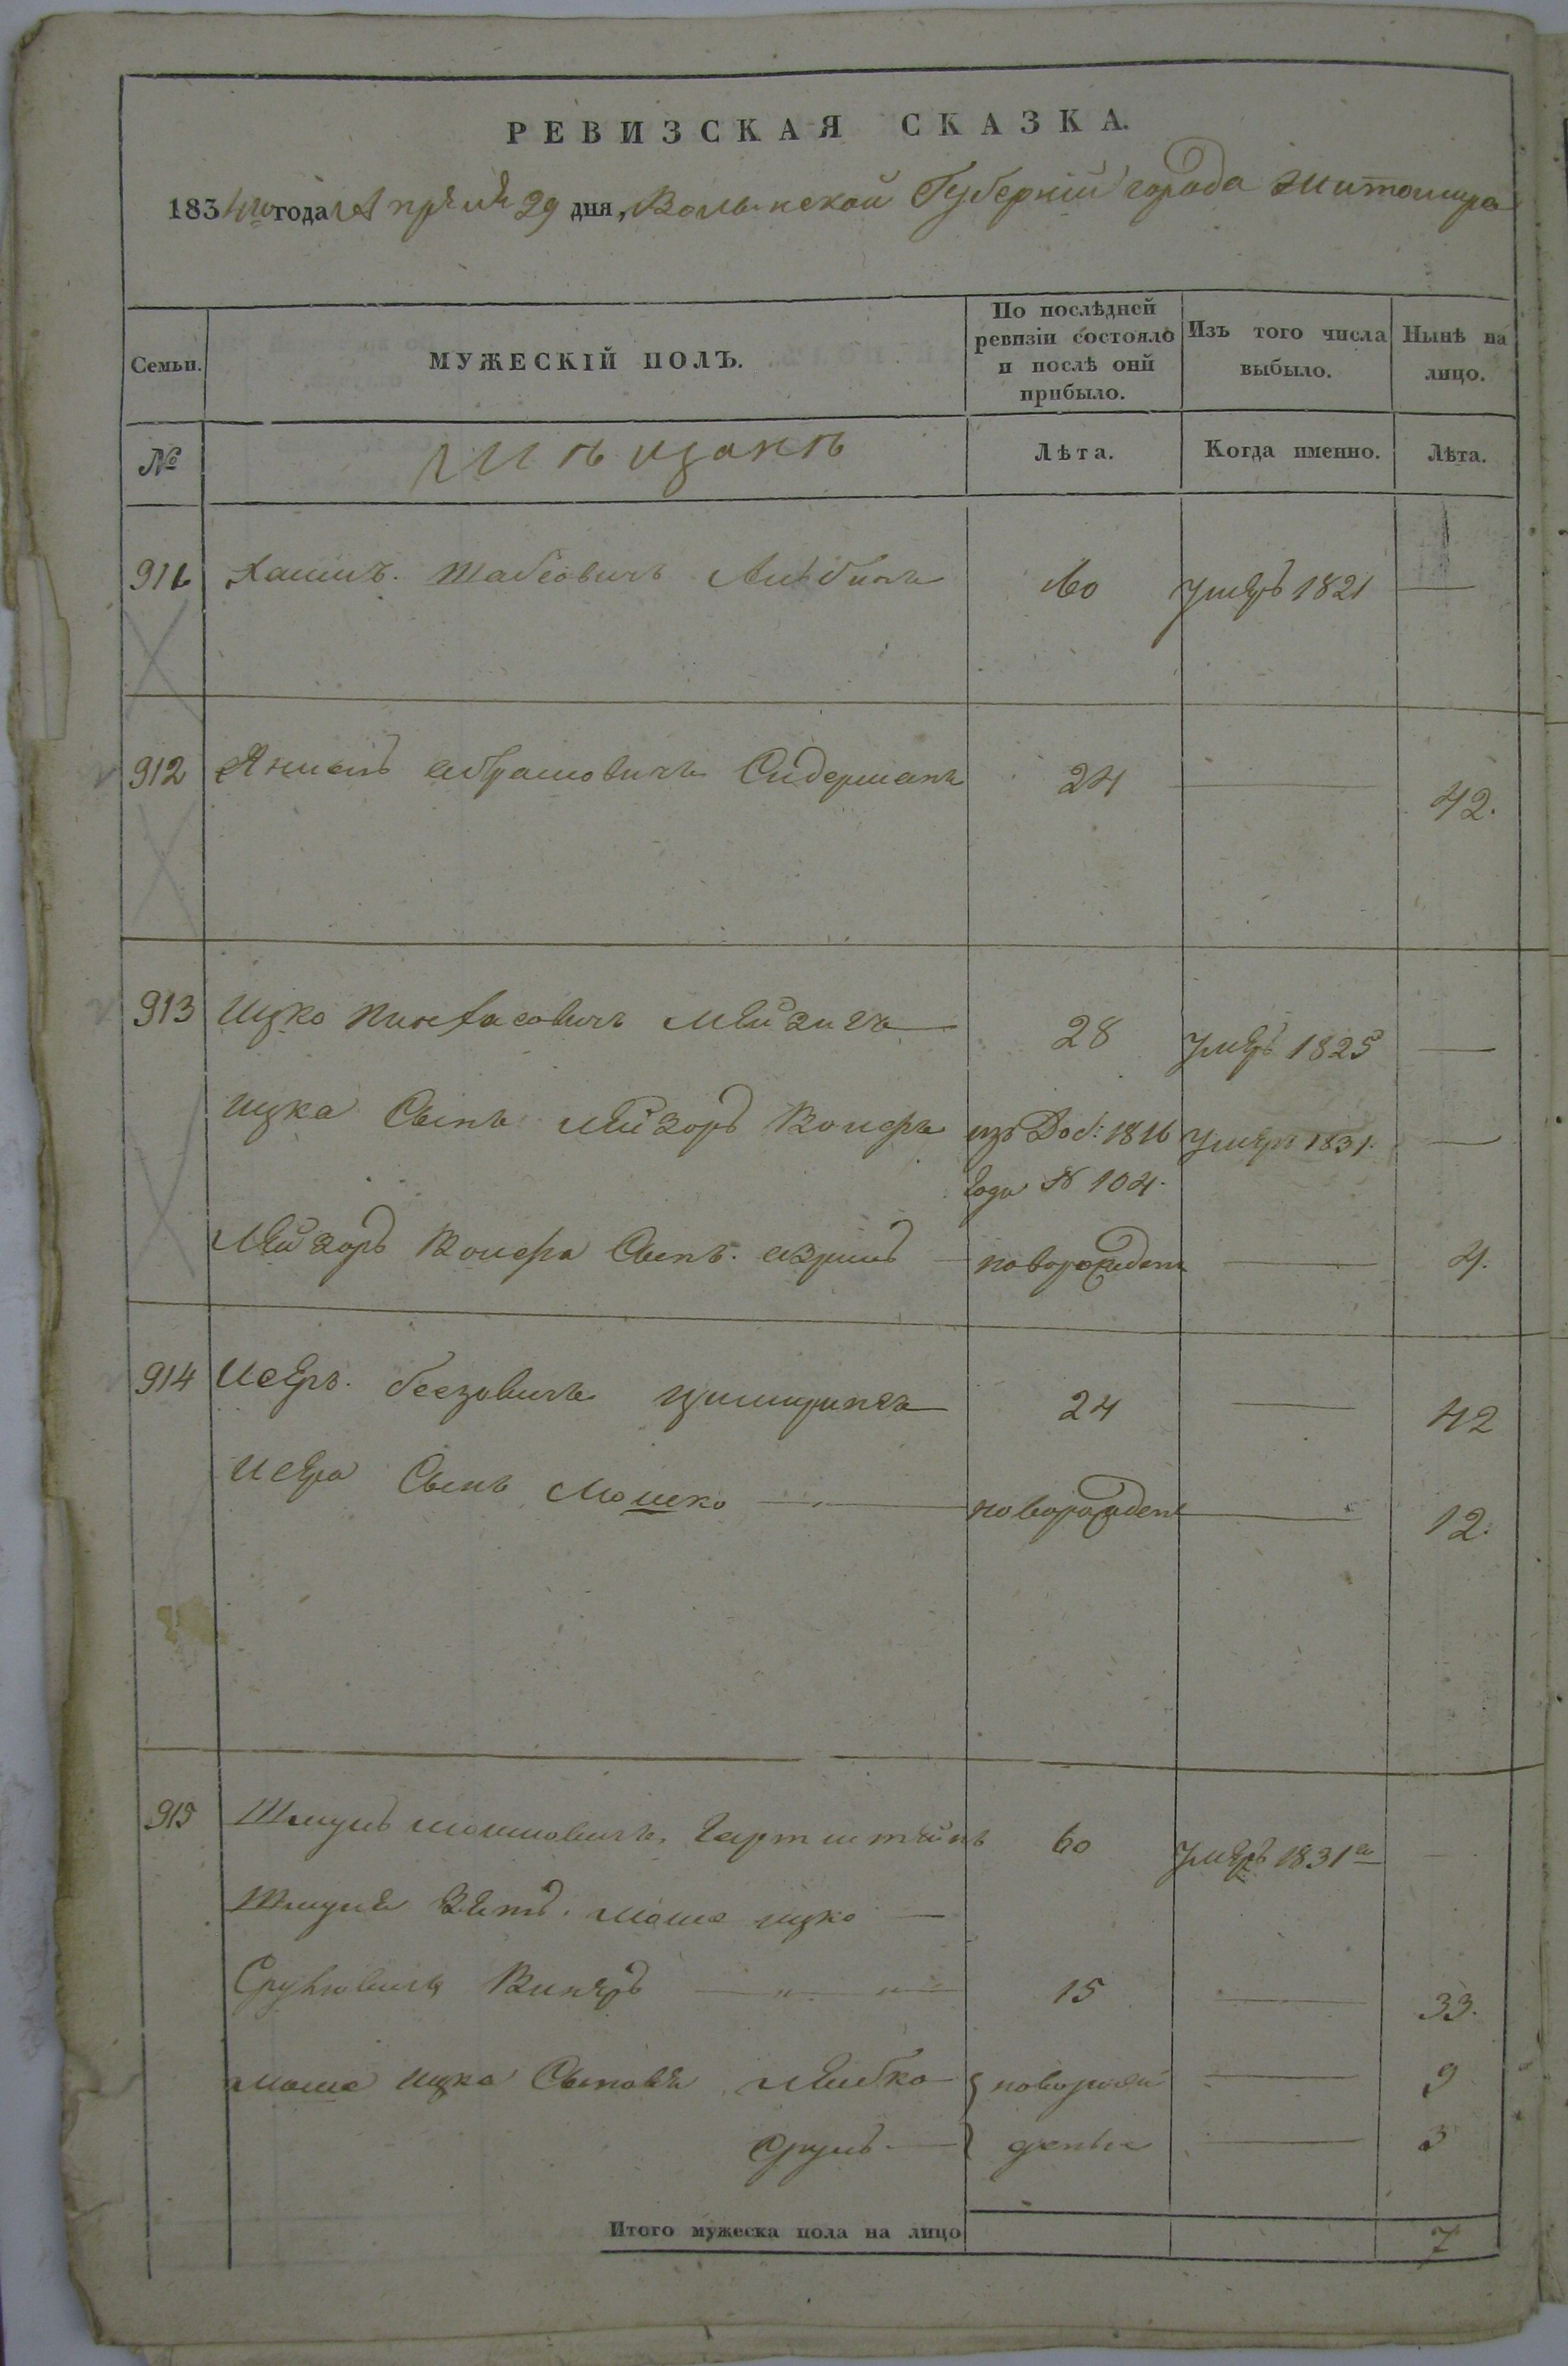 РЕВИЗСКАЯ СКАЗКА.
1834го года Апреля 29 дня, Волынской Губерніи города Житомира
Семьи. МУЖЕСКІЙ ПОЛЪ. По послѣдней ревизіи состояло и послѣ оий прибыло. Изъ того числа выбыло. Нынѣ на лицо.
№ Лѣта. Когда именно. Лѣта.
911 Хаимъ Шабсовичъ 60 умеръ 1821 —
912 Янкель Абрамовичъ Сидерманъ 24 — 42.
913 Ицко Пинхасовичъ Мейзигъ — 28 умеръ 1825 —
Ицка Сынъ Лейзоръ Волфъ изъ Доб: 1816 умеръ 1831. —
года № 104.
Лейзоръ Волфа Сынъ Азриль — новорожденъ — 4.
914 Исеръ Беезовичъ 24 — 42
Исера Сынъ Мошко — новорожденъ — 12.
915 Шмуль Мошковичъ Гартштейнъ 60 умеръ 1831го —
Шмуля Зять Моше Ицко —
Срулювичъ Винеръ — " " — 15 — 33.
Моше Ицка Сыновья Лейбко — новорож — 9
Сруль — денные — 3
Итого мужеска пола на лицо 7